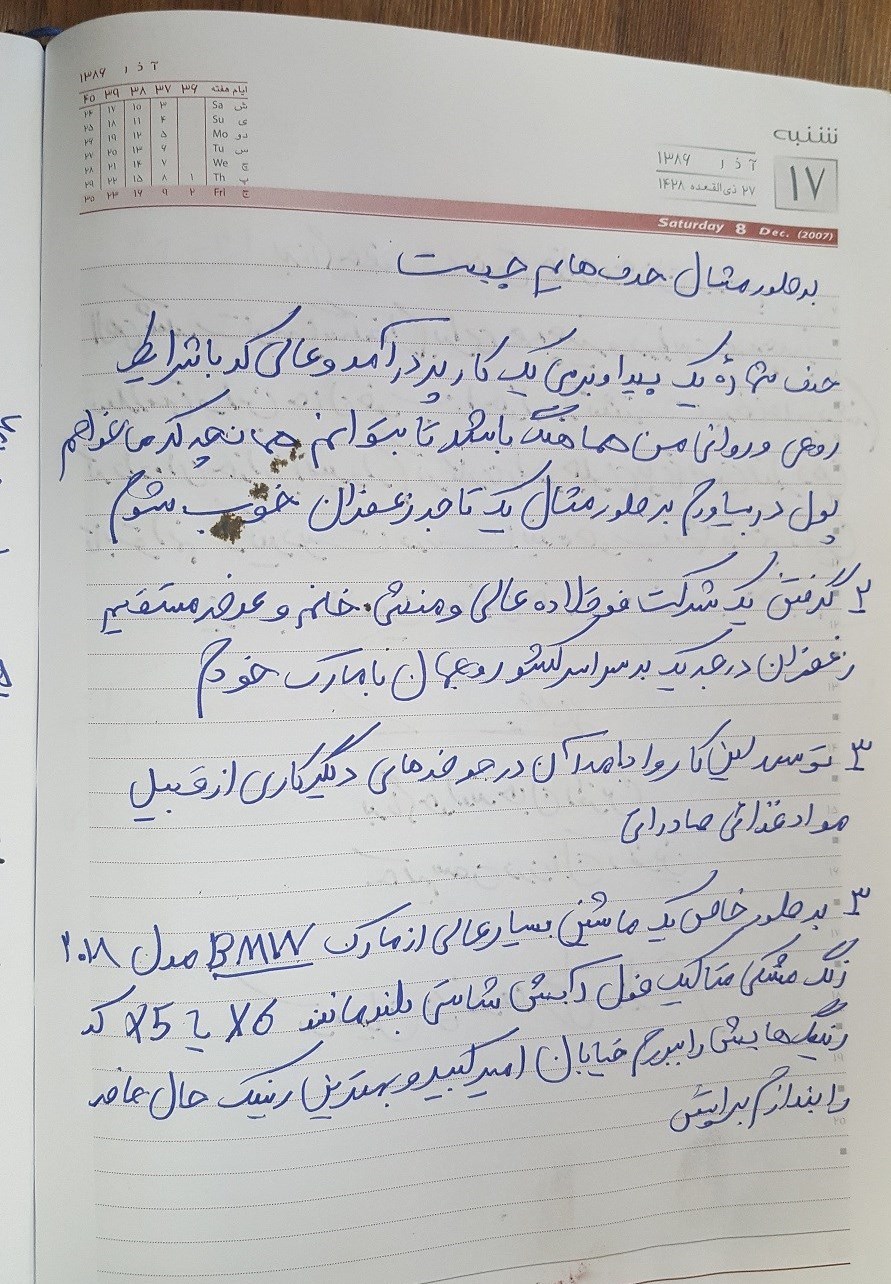 آذر ۱۳۸۶
ایام هفته ۳۶ ۳۷ ۳۸ ۳۹ ۴۰
ش Sa ۳ ۱۰ ۱۷ ۲۴
ی Su ۴ ۱۱ ۱۸ ۲۵
دو Mo ۵ ۱۲ ۱۹ ۲۶
س Tu ۶ ۱۳ ۲۰ ۲۷
چ We ۷ ۱۴ ۲۱ ۲۸
پ Th ۱ ۸ ۱۵ ۲۲ ۲۹
ج Fri ۲ ۹ ۱۶ ۲۳ ۳۰
شنبه
۱۷
آذر ۱۳۸۶
۲۷ ذی‌القعده ۱۴۲۸
Saturday 8 Dec. (2007)
به طور مثال هدف هایم چیست
هدف شماره یک پیدا و بدمی یک کار پر درآمد و عالی که با شرایط
روحی و روانی من هماهنگ باشد تا بتوانم همانچه که می خواهم
پول در بیاورم به طور مثال یک تاجر زعفران خوب بشوم
۲ گرفتن یک شرکت فوق العاده عالی و منشی خانم و عرضه مستقیم
زعفران درجه یک به سراسر کشور و جهان با مارک خودم
۳ توسعه این کار و ادامه آن در حوضه های دیگر کاری از قبیل
مواد غذائی صادراتی
۳ به طور خاص یک ماشین بسیار عالی از مارک BMW مدل ۲۰۱۸
رنگ مشکی متالیک فول آپشن شاسی بلند مانند X6 یا X5 که
رینگ هایش را ببرم خیابان امیرکبیر و بهترین رینگ حال حاضر
را بندازم برایش